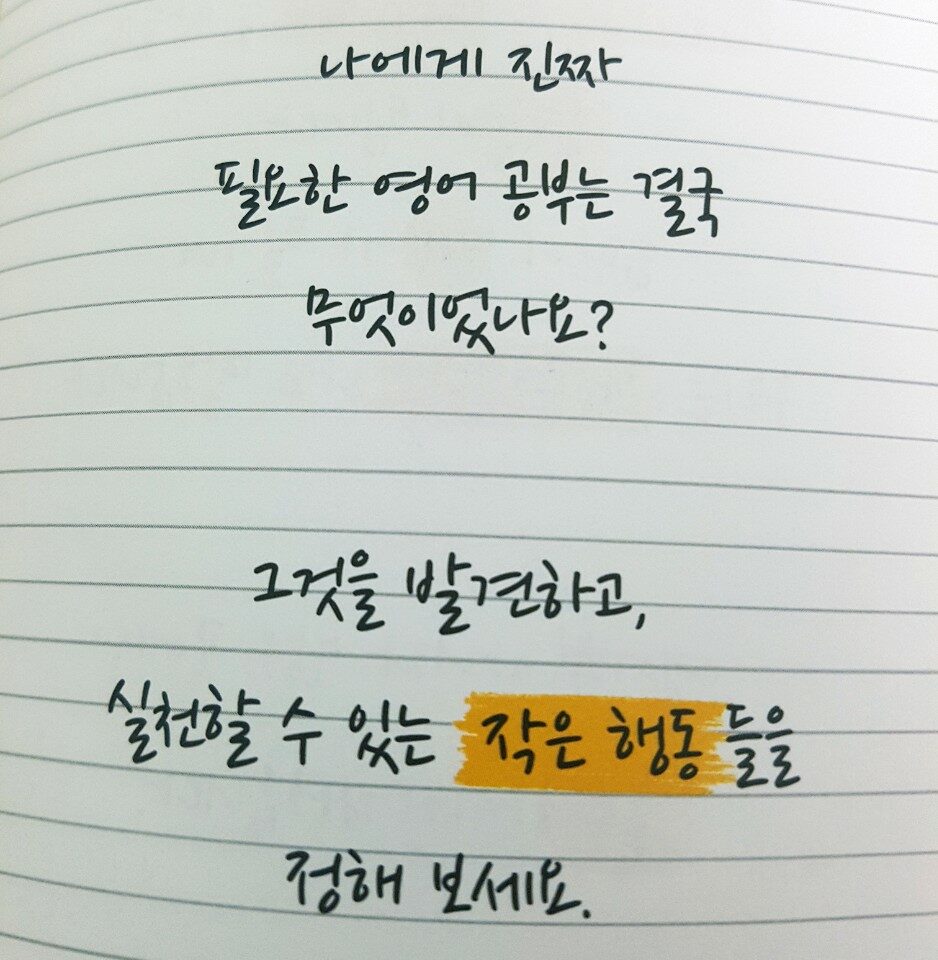 나에게 진짜
필요한 영어 공부는 결국
무엇이었나요?
그것을 발견하고,
실천할 수 있는 작은 행동들을
정해 보세요.